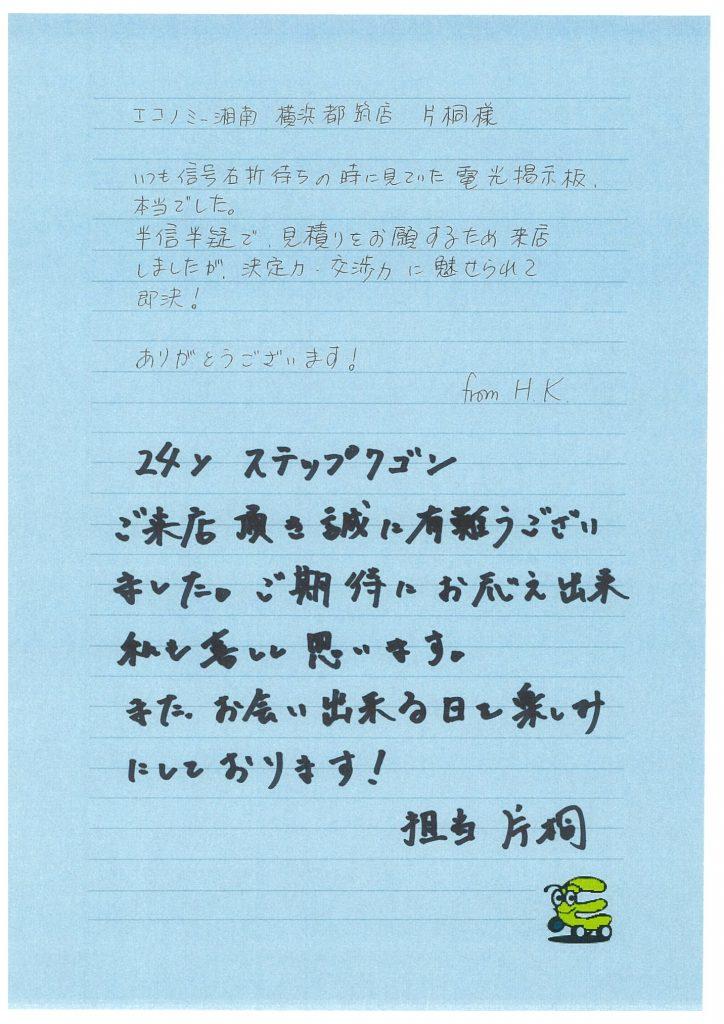 エコノミー湘南 横浜都筑店 片桐様
いつも信号右折待ちの時に見ていた電光掲示板、
本当でした。
半信半疑で、見積りをお願するため来店
しましたが、決定力・交渉力に魅せられて
即決!
ありがとうございます!
from H.K.
24y ステップワゴン
ご来店頂き誠に有難うござい
ました。ご期待にお応え出来
私も喜しい思います。
また、お会い出来る日を楽しみ
にしております!
担当 片桐